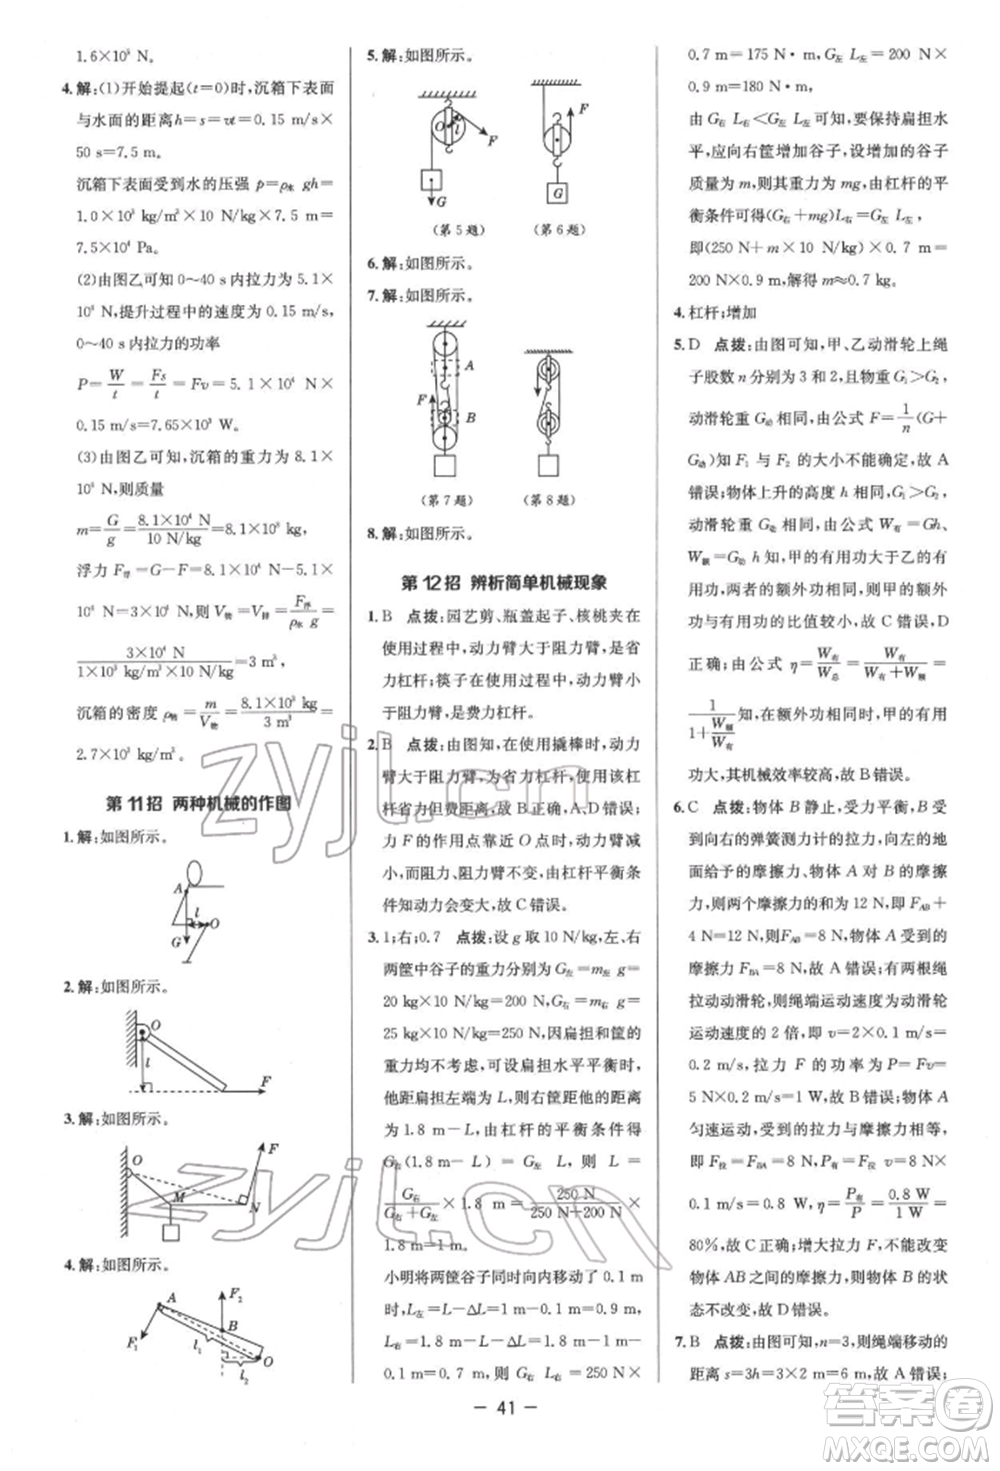 1.6×10⁵ N.
4.解:(1)开始提起(t=0)时,沉箱下表面
与水面的距离h=s=vt=0.15 m/s×
50 s=7.5 m.
沉箱下表面受到水的压强 p=ρ水 gh=
1.0×10³ kg/m³×10 N/kg×7.5 m=
7.5×10⁴ Pa.
(2)由图乙可知0～40 s内拉力F=5.1×
10⁴ N,提升过程中的速度为0.15 m/s,
0～40 s内拉力的功率
P=W/t=Fs/t=Fv=5.1×10⁴ N×
0.15 m/s=7.65×10³ W.
(3)由图乙可知,沉箱的重力为8.1×
10⁴ N,则质量
m=G/g=8.1×10⁴ N/10 N/kg=8.1×10³ kg,
浮力F浮=G-F=8.1×10⁴ N-5.1×
10⁴ N=3×10⁴ N,则V物=V排=F浮/ρ水 g=
3×10⁴ N/1×10³ kg/m³×10 N/kg=3 m³,
沉箱的密度ρ物=m/V物=8.1×10³ kg/3 m³=
2.7×10³ kg/m³.
第11招 两种机械的作图
1.解:如图所示。
A
l
O
G
2.解:如图所示。
O
l
F
3.解:如图所示。
F
O
M
N
4.解:如图所示。
A
F₂
B
F₁
l₁
O
l₂
5.解:如图所示。
O
l
F
G
F
G
(第5题) (第6题)
6.解:如图所示。
7.解:如图所示。
A
F
B
F
(第7题) (第8题)
8.解:如图所示。
第12招 辨析简单机械现象
1.B 点拨:园艺剪、瓶盖起子、核桃夹在
使用过程中,动力臂大于阻力臂,是省
力杠杆;筷子在使用过程中,动力臂小
于阻力臂,是费力杠杆。
2.B 点拨:由图知,在撬棒中,动力
臂大于阻力臂,为省力杠杆,使用杠杆
省力但费距离,所以B正确,A、D错误;
力F的作用点变到Q点时,动力臂减
小,而阻力、阻力臂不变,由杠杆平衡
条件知动力会变大,故C错误。
3.1;右;0.7 点拨:设g取10 N/kg,左、右
两筐中谷子的重力分别为G左=m左 g=
20 kg×10 N/kg=200 N,G右=m右 g=
25 kg×10 N/kg=250 N,因扁担和筐的
重力不计,所以,要使扁担水平平衡时,
设肩膀距扁担左端L,右筐距他的肩膀
1.8 m-L,由杠杆的平衡条件得
G右(1.8 m-L)=G左 L,则L=
G右/G右+G左×1.8 m=250 N/250 N+200 N×
1.8 m=1 m.
小明将两筐谷子同时向右移动0.1 m
时,L左=L-ΔL=1 m-0.1 m=0.9 m,
L右=1.8 m-L-ΔL=1.8 m-1 m-
0.1 m=0.7 m,则G右 L右=250 N×
0.7 m=175 N·m,G左 L左=200 N×
0.9 m=180 N·m,
由G右 L右<G左 L左可知,要保持扁担水
平,应向右筐增加谷子,设增加的谷子
质量为m,则其重力为mg,由杠杆的平
衡条件可得(G右+mg)L右=G左 L左,
即(250 N+m×10 N/kg)×0.7 m=
200 N×0.9 m,解得m≈0.7 kg.
4.杠杆;增加
5.D 点拨:由图可知,甲、乙动滑轮上绳
子股数n分别为3和2,且物重G₁>G₂,
动滑轮重G动相同,由公式F=1/n(G+
G动)知F₁与F₂的大小不能确定,故A
错误;物体上升的高度h相同,G₁>G₂,
动滑轮重G动相同,由公式W有=Gh、
W额=G动h知,甲的有用功大于乙的有
用功,额外功相等,所以甲的额外功
与有用功的比值较小,故C错误,D
正确;由公式η=W有/W总=W有/W有+W额=
1/1+W额/W有知,在额外功相同时,甲的有用
功大,其机械效率较高,故B错误。
6.C 点拨:物体B静止,受力平衡,B受
到向右的弹簧测力计的拉力,向左的地
面给予的摩擦力、物体A对B的摩擦
力,两个摩擦力的和为12 N,即FAB+
4 N=12 N,则FAB=8 N,物体A受到的
摩擦力FBA=8 N,故A错误;有两根绳
拉动动滑轮,则绳端运动速度是动滑轮
运动速度的2倍,即v=2×0.1 m/s=
0.2 m/s,拉力F的功率P=Fv=
5 N×0.2 m/s=1 W,故B错误;物体A
匀速运动,所以拉力与摩擦力相等,
即F拉=FBA=8 N,P有=F拉v物=8 N×
0.1 m/s=0.8 W,η=P有/P=0.8 W/1 W=
80%,故C正确;增大拉力F,不能改变
物体AB之间的摩擦力,所以B的状
态不改变,故D错误。
7.B 点拨:由图可知,n=3,则绳端移动的
距离s=3h=3×2 m=6 m,故A错误;
— 41 —
zyjl.cn
zyjl.cn
答案圈
MXQE.COM